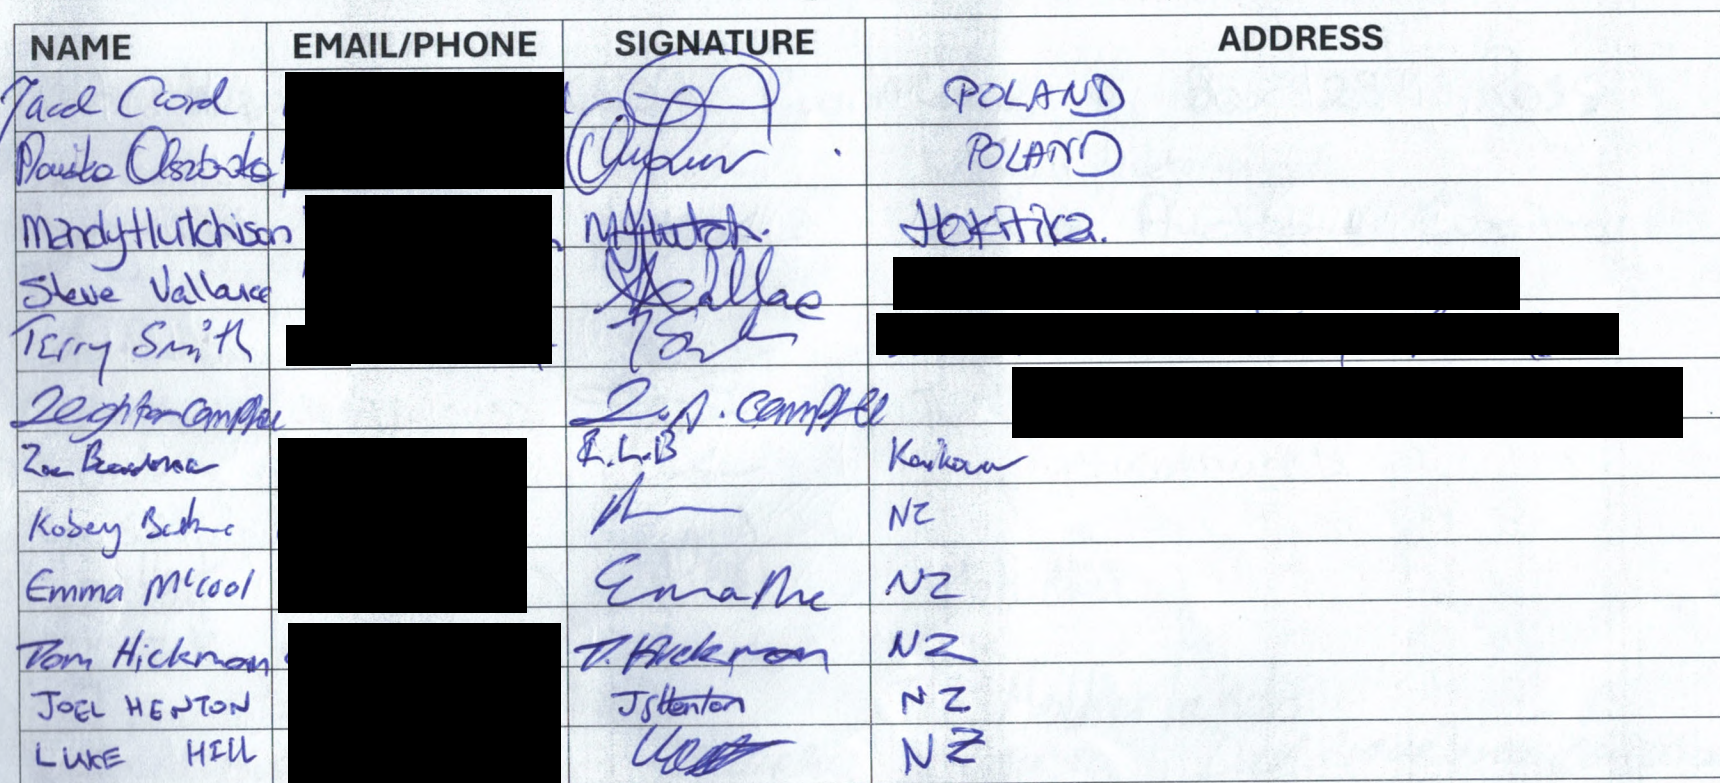 NAME EMAIL/PHONE SIGNATURE ADDRESS
POLAND
POLAND
Mandy Hutchison M Hutch. Hokitika.
Steve Vallance
Terry Smith
Leighton Campbell L.A. Campbell
Zoe R.L.B Kaikoura
Kobey NZ
Emma McCool NZ
Tom Hickman T. Hickman NZ
JOEL HENTON JSHenton NZ
LUKE HILL NZ